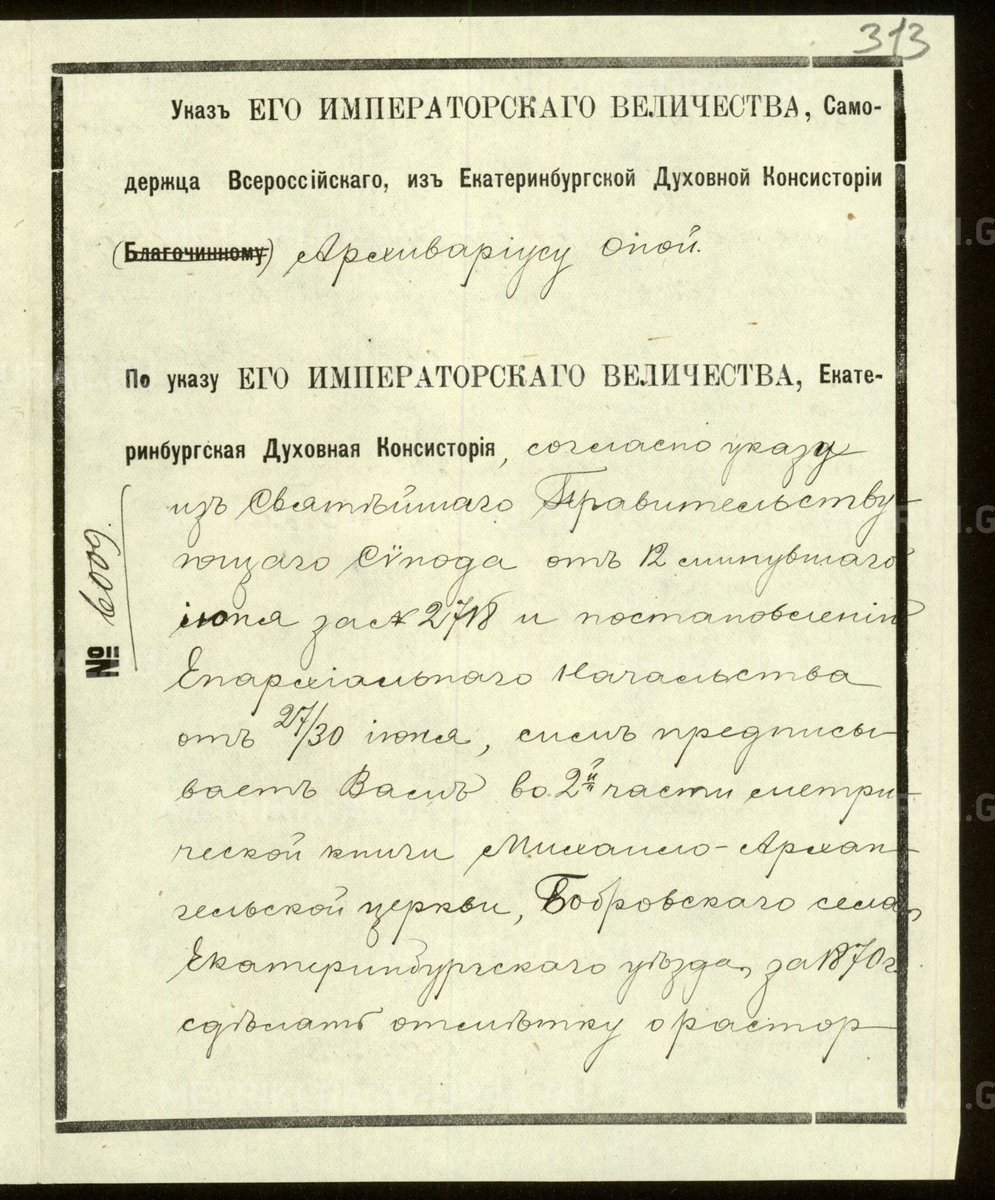 313
Указъ ЕГО ИМПЕРАТОРСКАГО ВЕЛИЧЕСТВА, Само-
держца Всероссійскаго, изъ Екатеринбургской Духовной Консисторіи
(Благочинному) Архиваріусу оной.
По указу ЕГО ИМПЕРАТОРСКАГО ВЕЛИЧЕСТВА, Екате-
ринбургская Духовная Консисторія, согласно указу
изъ Святѣйшаго Правительству-
ющаго Сѵнода отъ 12 минувшаго
іюня за № 2718 и постановленію
Епархіальнаго Начальства
отъ 27/30 іюня, симъ предписы-
ваетъ Вамъ во 2й части метри-
ческой книги Михаило-Архан-
гельской церкви, Бобровскаго села,
Екатеринбургскаго уѣзда, за 1870 г.
сдѣлать отмѣтку о растор-
№ 6009.